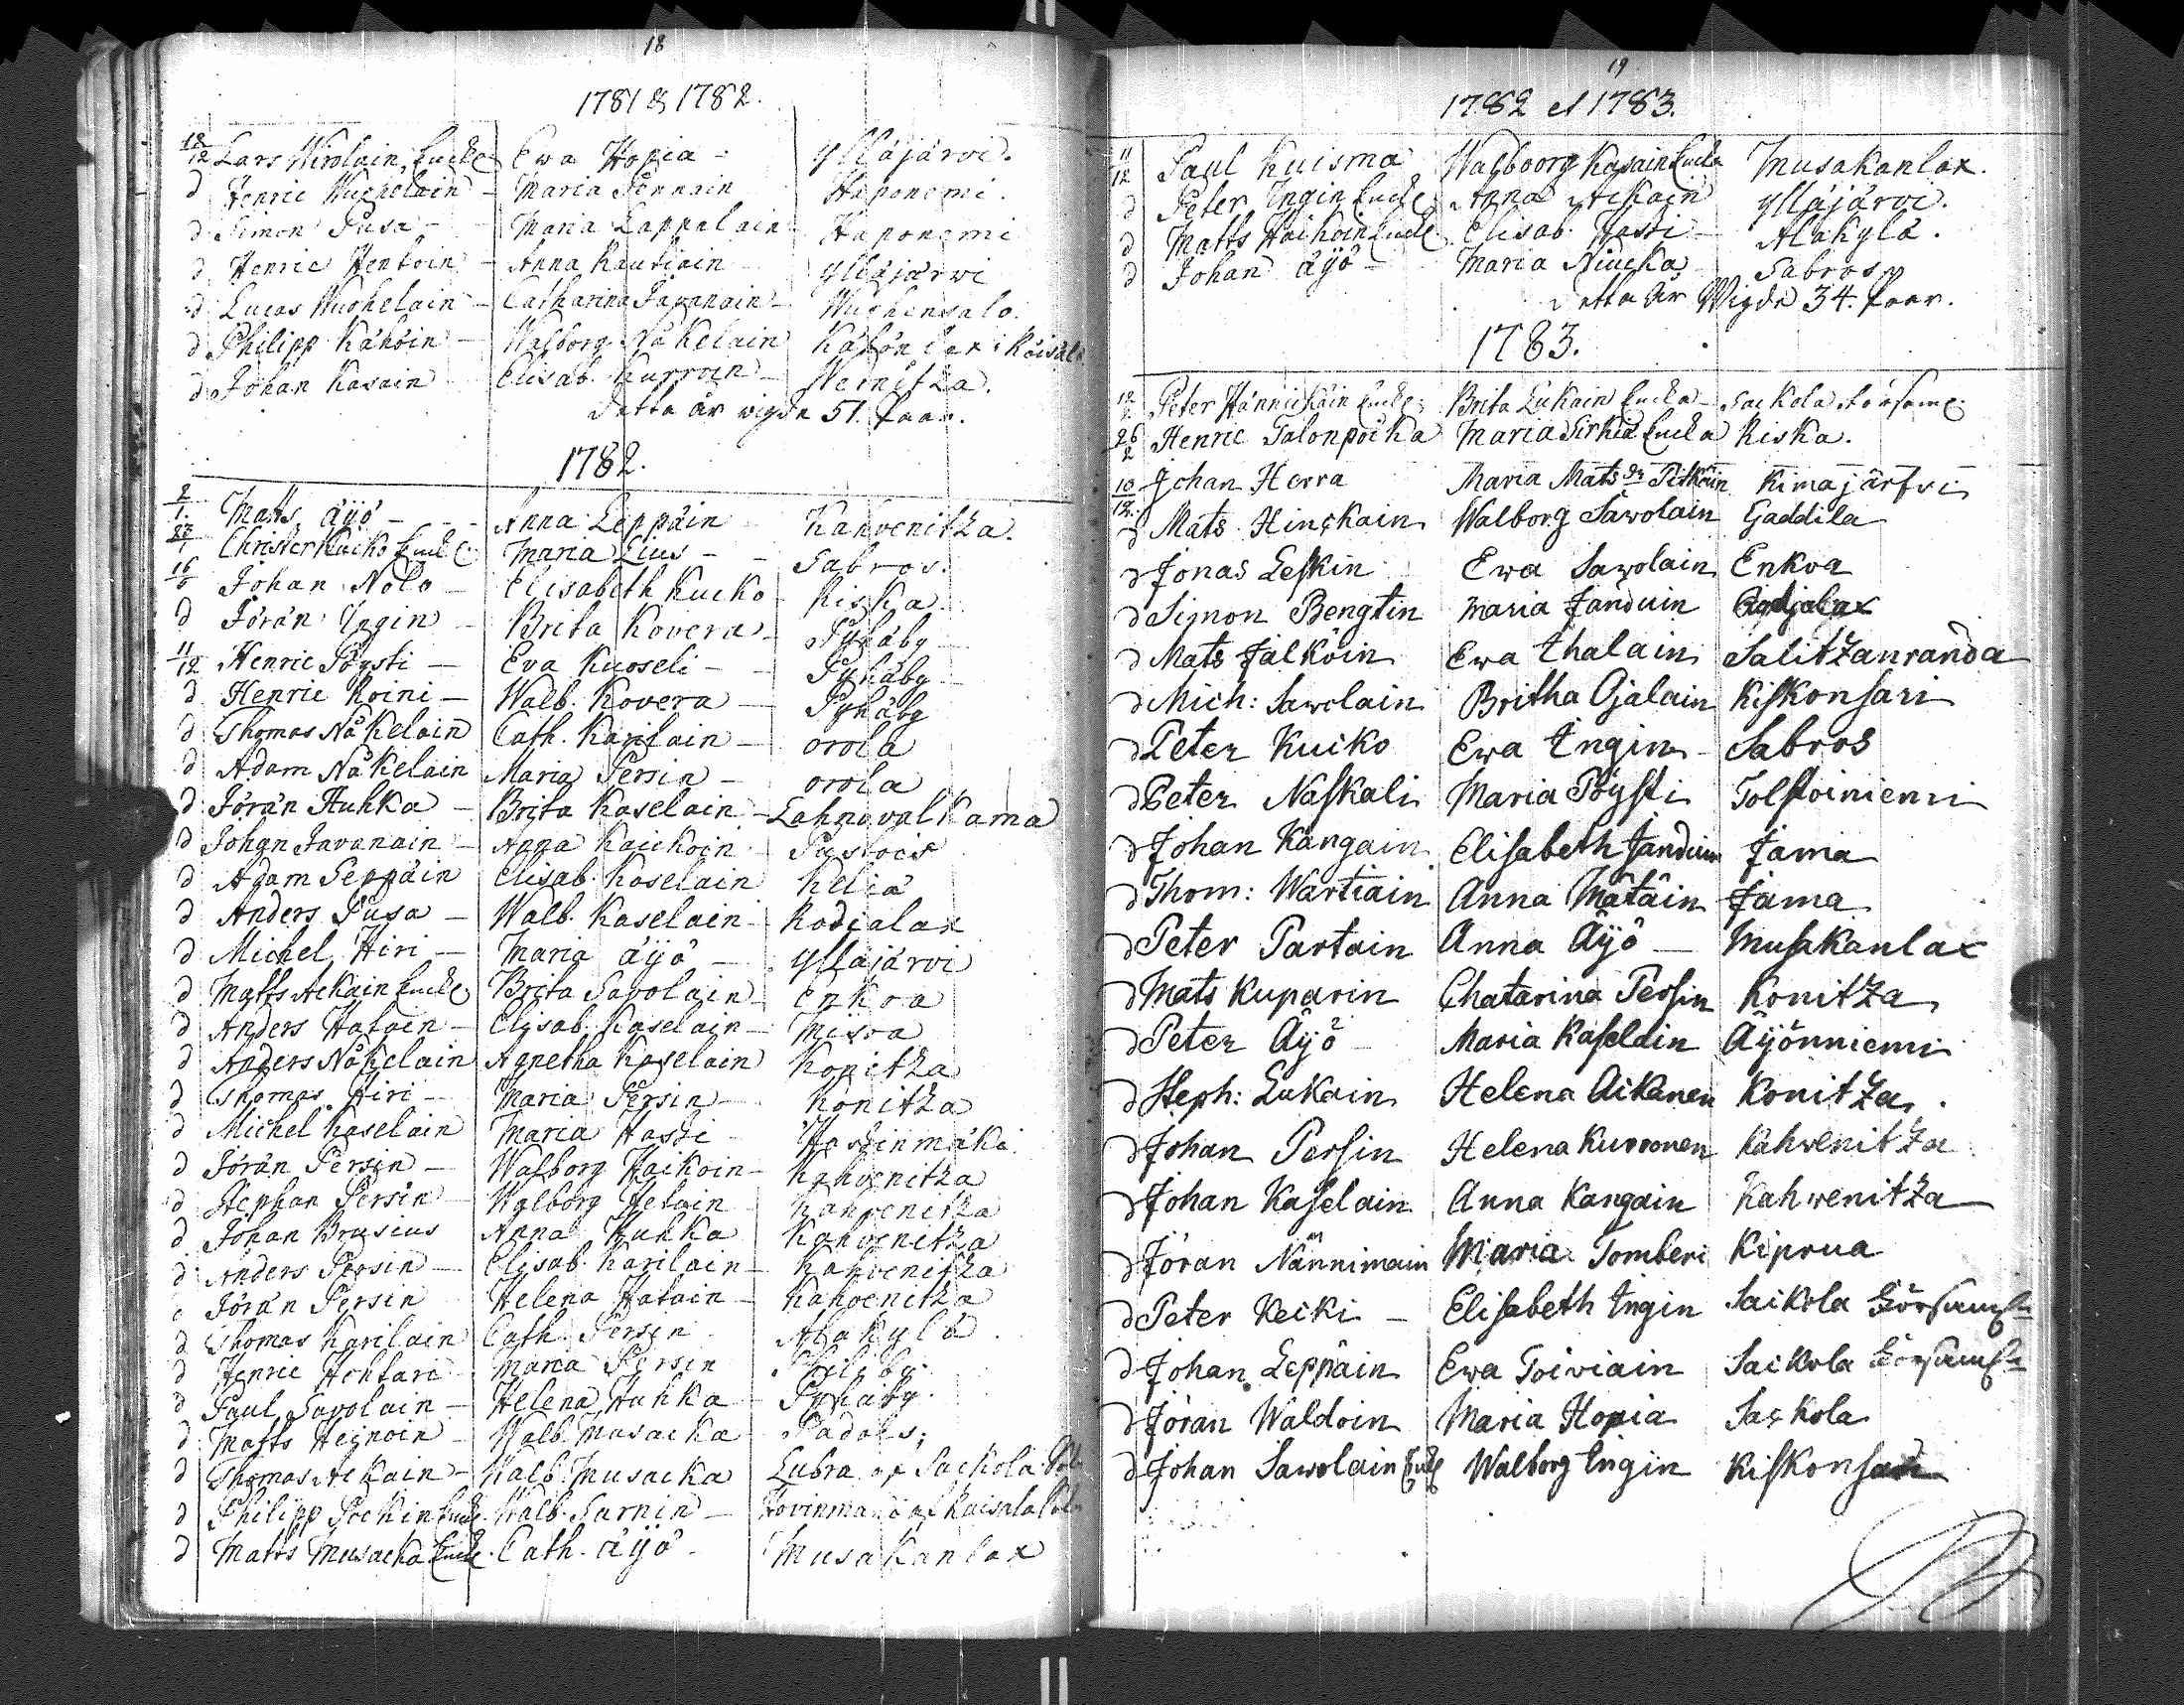 18
1781 & 1782.
12/12 Lars Wirolain, Enckl. Ewa Hopia - Ylläjärvi.
d Henric Wuohelain - Maria Pennain Haponemi.
d Simon Pusa - Maria Lappalain Haponemi
d Henric Hentoin - Anna Rautiain Ylläjärwi
d Lucas Wuohelain - Catharina Javanain - Wuohensalo.
d Philipp Kähöin - Walborg Näkelain i Räisäl
d Johan Kasain Elisab. Kurroin - Wernitza.
Detta år wigde 51. Paar.
1782.
Matts äÿö - - - Anna Leppäin Kahvenitza.
Christer Kuiko Enckl. Maria Lius - - Sabros.
Johan Nolo - Elisabeth Kucko Riska
d Jörän Ingin - Brita Kovera - Pyhäby
11/12 Henric Pöysti - Eva Kuoseli - Pyhäby
d Henric Koini - Walb. Kovera - Pyhäby
d Thomas Näkelain Cath. Karilain - Orola
d Adam Näkelain Maria Persin - Orola
d Jörän Huhka - Brita Kaselain - Lahnavalkama
d Johan Javanain - Anna Kaickoin
d Adam Seppäin Elisab. Kaselain Kelia
d Anders Pusa - Walb. Kaselain Kodjalax
d Michel Hiri - Maria äÿö - Ylläjärvi
d Matts Ackain Enckl. Brita Savolain - Enkva
d Anders Hatain - Elisab. Kaselain - Misva
d Anders Näkelain Agnetha Kaselain Konitza
d Thomas Hiri - Maria Persin - Konitza
d Michel Kaselain Maria Hasti - Hastinmäki
d Jörän Persin - Walborg Haikoin - Kahvenitza
d Stephan Persin - Walborg Hetain - Kahvenitza
d Johan Brusius Anna Huhka Kahvenitza
d Anders Persin - Elisab. Karilain - Kahvenitza
d Jörän Persin Helena Hatain - Kahvenitza
d Thomas Karilain Cath. Persin Alakylä.
d Henric Hohtari Maria Persin
d Paul Savolain - Helena Huhka Pyhäby.
d Matts Heinoin - Walb. Musacka
d Thomas Ackain - Walb. Musacka Lubra af Sackola
d Philipp Pockin Enckl. Walb. Surnin - af Raisala
d Matts Musacka Enckl. Cath. äÿö - Musakanlax
19
1782 et 1783.
11/12 Paul Kuisma Walboorg Kasain Enckla Musakanlax.
d Peter Ingin Enckl. Anna Ackain Ylläjärvi.
d Matts Haikoin Enckl. Elisab. Hasti - Alakylä.
d Johan äÿö - Maria Niucka Sabros
Detta år Wigde 34. Paar.
1783.
Peter Hännickäin Enckl. Brita Lukain Enckla - Sackola
26/2 Henric Talonpoika Maria Enckla Riska.
10/12 Johan Herra Maria Mats dr Pitkäin Kimajärfvi
d Mats Hinckain Walborg Sawolain Gaddila
d Jonas Leskin Ewa Sawolain Enkva
d Simon Bengtin Maria Janduin
d Mats Jälköin Ewa Ihalain Salitzanranda
d Mich: Sawolain Britha Ojalain Kiskonsari
d Peter Kuiko Ewa Ingin - Sabros
d Peter Naskali Maria Pöysti Tolstoiniemi
d Johan Kangain Elisabeth Janduin Jama
d Thom: Wartiain Anna Mätäin Jama
d Peter Partain Anna Äÿö - Musakanlax
d Mats Kuparin Chatarina Persin Konitza
d Peter Äÿö - Maria Kaselain Äÿönniemi
d Steph: Lukain Helena Aikanen Konitza.
d Johan Persin Helena Kurronen Kahwenitza
d Johan Kaselain Anna Kangain Kahwenitza
d Jöran Nännimain Maria Tomberi Kiprua
d Peter Keiki - Elisabeth Ingin Saikola Församl.
d Johan Leppäin Ewa Toiviain Saikola Församl.
d Jöran Waldoin Maria Hopia Sackola
d Johan Sawolain Enckl Walborg Ingin Kiskonsari